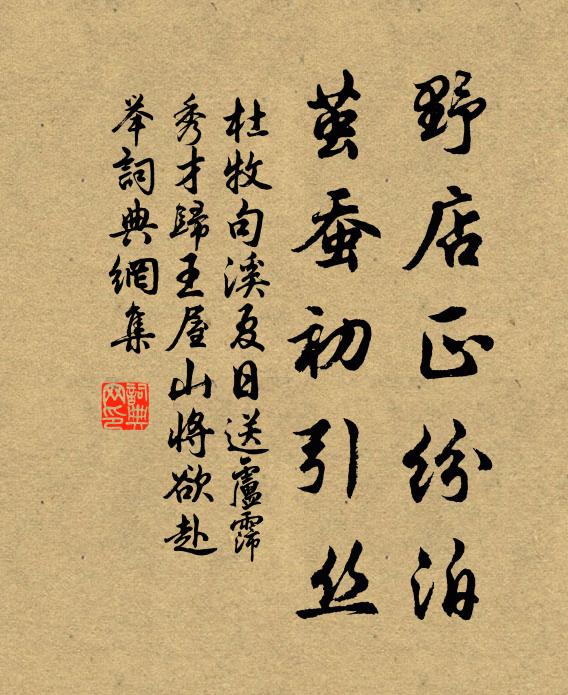 野店正紛泊
茧蚕初引丝
杜牧句溪夏日送盧霈
秀才歸王屋山将欲赴
举詞典網集
詞典
网印